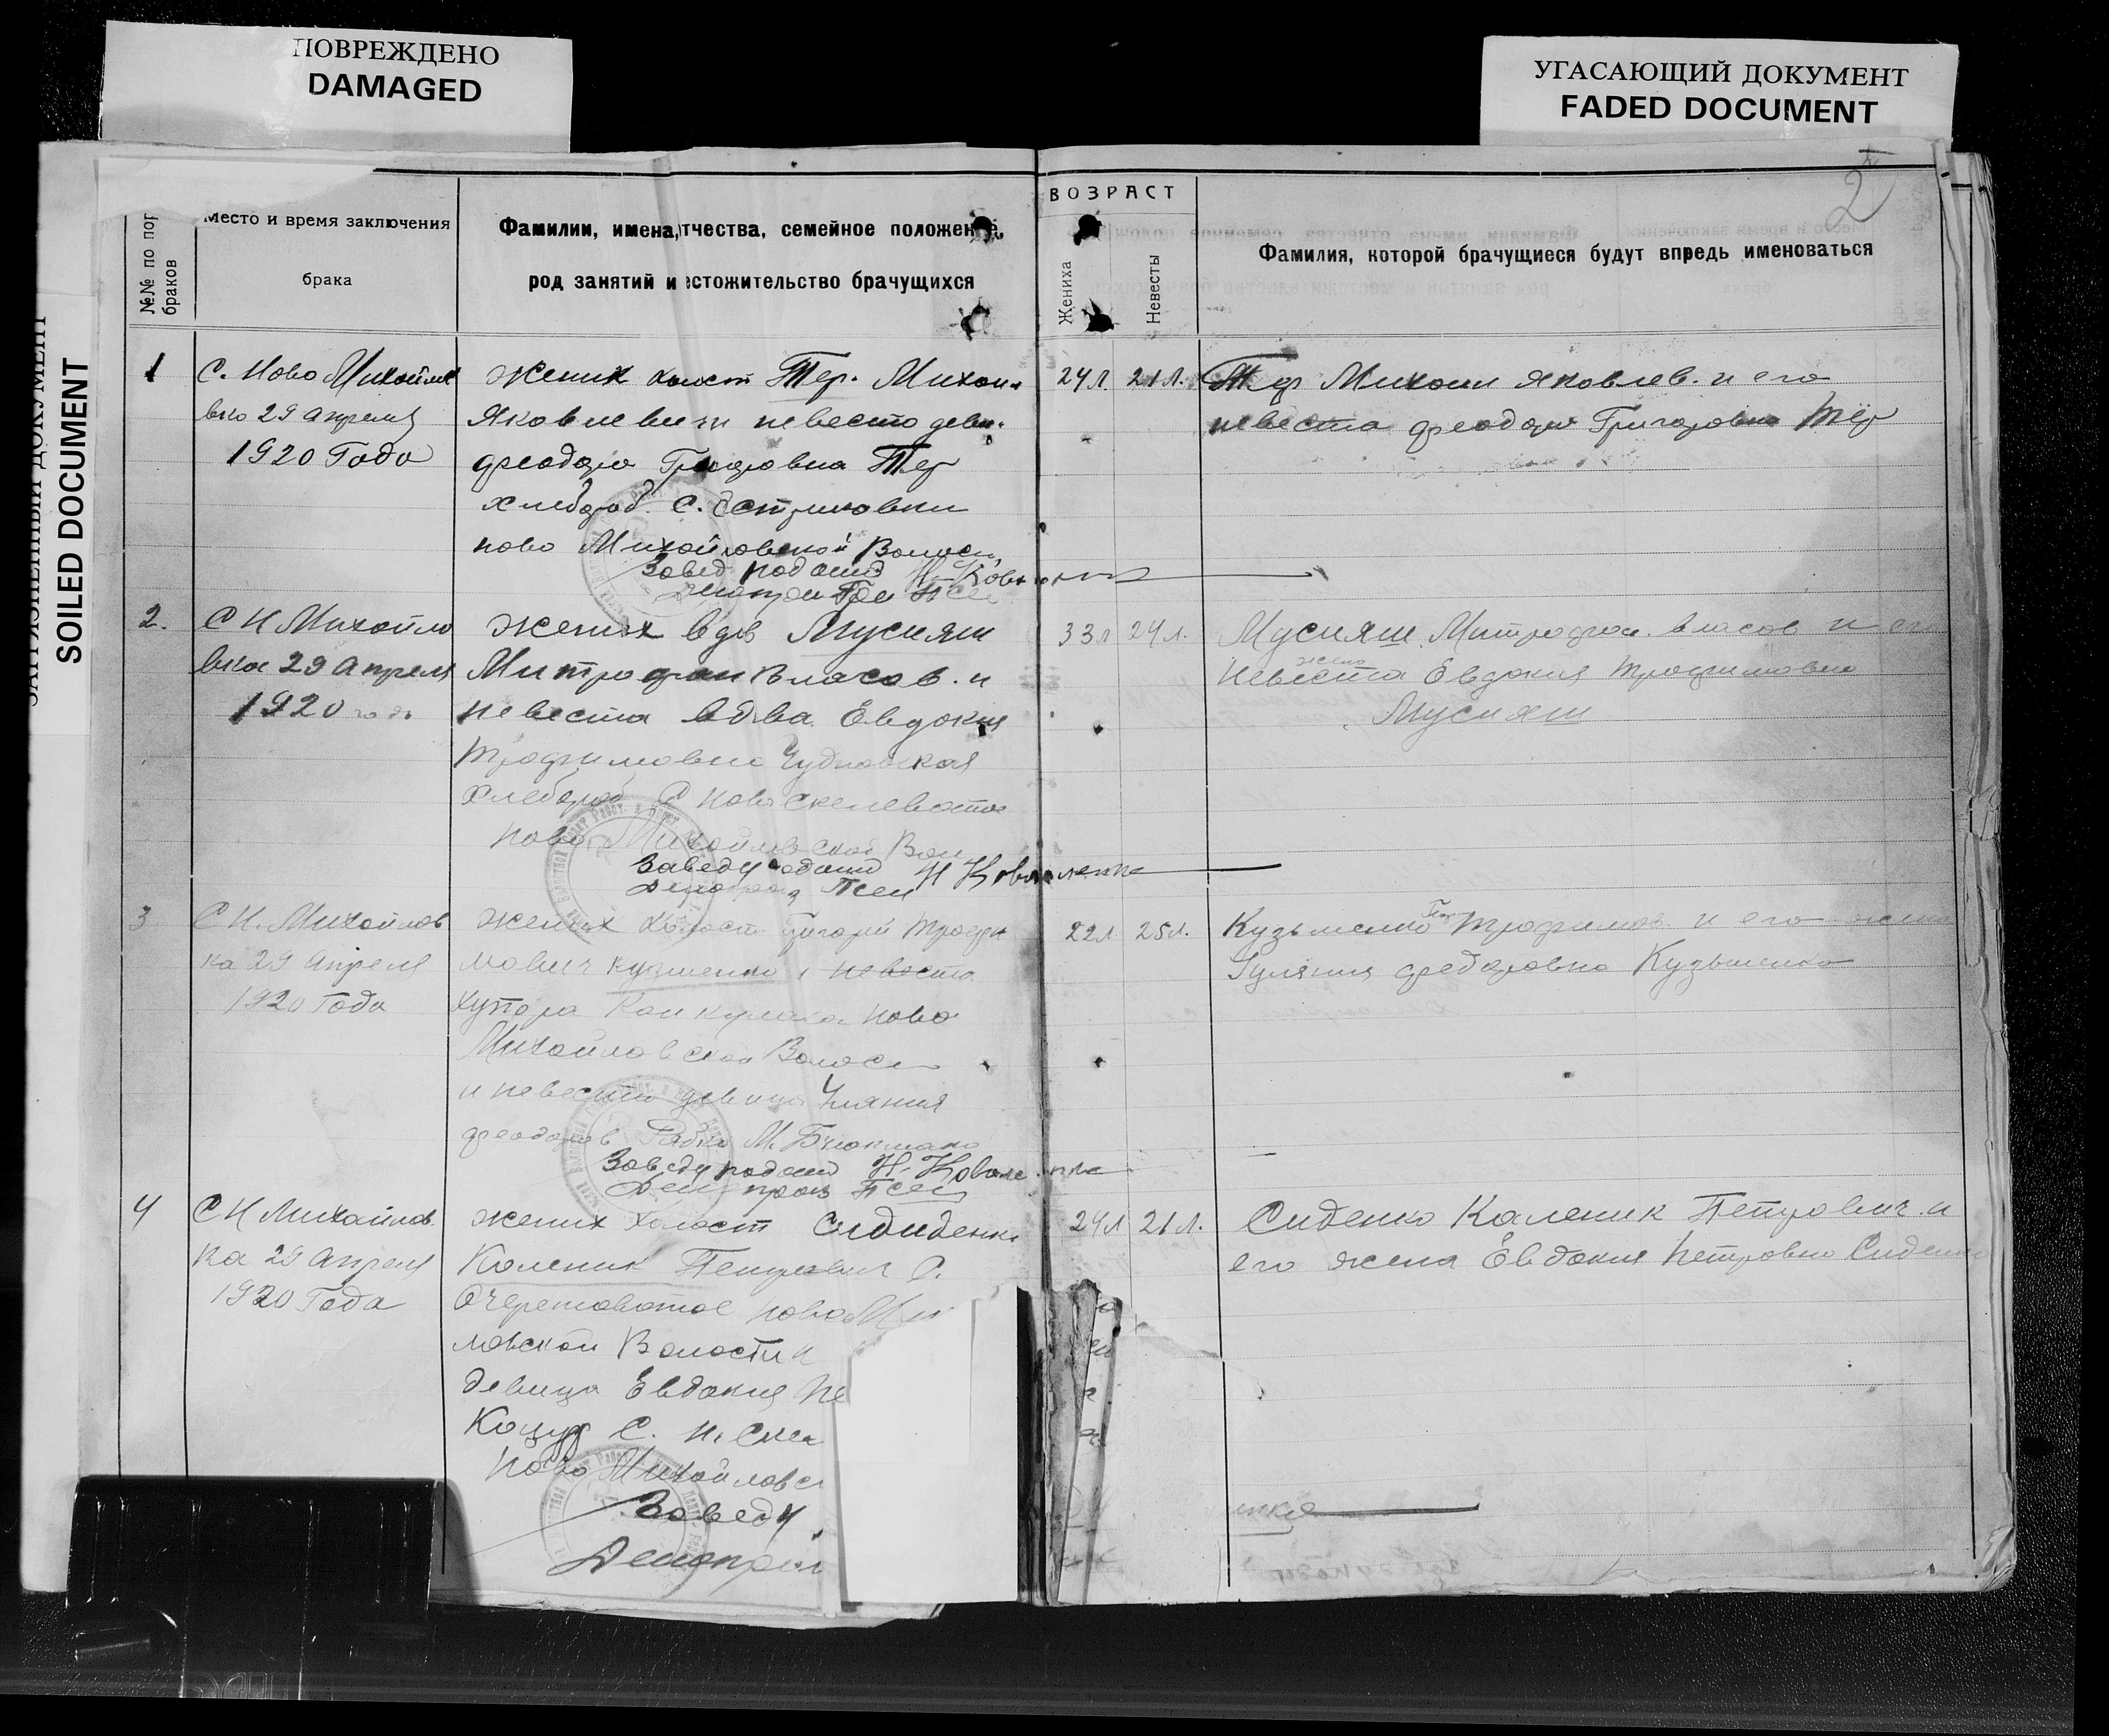 ПОВРЕЖДЕНО
DAMAGED
УГАСАЮЩИЙ ДОКУМЕНТ
FADED DOCUMENT
ЗАГРЯЗНЕННЫЙ ДОКУМЕНТ
SOILED DOCUMENT
2
№№ по пор
браков
Место и время заключения
брака
Фамилии, имена, тчества, семейное положение,
род занятий и естожительство брачущихся
ВОЗРАСТ
Жениха
Невесты
Фамилия, которой брачущиеся будут впредь именоваться
1
С. Ново Михайлов
вка 29 апреля
1920 Года
Жених холост Тер. Михаил
Яковлевич невеста деви.
Феодора Григоровна Тер
Хлебороб. С.
ново Михайловской Волости
Завед подотд Н. Ковал
Псел
24 л 21 л.
Тер Михаил Яковлев. и его
невеста Феодора Григоровна Тер
2.
С Н Михайло
вка 29 апреля
1920 года
Жених вдов Мусияш
Митрофан Власов. и
невеста вдва Евдокия
Трофимовна Чудновская
Хлебороб С Ново Скелеватое
Ново Михайловской Вол
Заведу подотд Н Коваленко
Делопроиз Псел
33 л 24 л.
Мусияш Митрофан. Власов и его
жена
невеста Евдокия Трофимовна
Мусияш
3
С Н. Михайлов
ка 29 Апреля
1920 Года
Жених Холост Григорий Трофи
мович Кузменко и невеста
хутора Ново
Михайловской Волости
и невеста девица Улания
Феодоров М.
Заведу подотд Н. Ковале нко
Делопроиз Псел
22 л 25 л.
Кузьменко Григ Трофимов. и его жена
Гуляния Федоровна Кузьменко
4
С Н Михайлов.
ка 29 Апреля
1920 Года
Жених Холост Сидиденко
Каленик Петрович С.
Очеретоватое ново Ми
ловской Волости и
девица Евдокия Пе
Коцур С. Н. Скел
Ново Михайловс
Заведу
Делопрои
24 л 21 л.
Сиденко Каленик Петрович. и
его жена Евдокия Петровна Сиденко